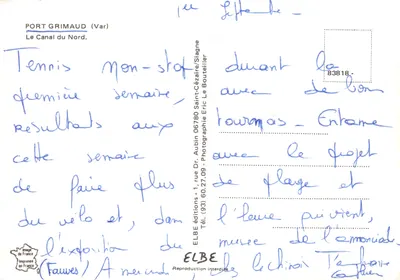 1er Septembre -
PORT GRIMAUD (Var)
Le Canal du Nord.
83818 -
Tennis non-stop durant la
première semaine, avec de bons
résultats aux tournois - Entame
cette semaine avec le projet
de faire plus de plage et
du vélo et, dans l'heure qui vient,
l'exposition du musée de l'annonciade
(Fauves) A
ELBE éditions - 1, rue Dr. Aubin 06780 Saint-Cézaire/Siagne
Tél. (93) 60.27.09 - Photographie Eric Le Bouteiller
ELBE
Reproduction interdite